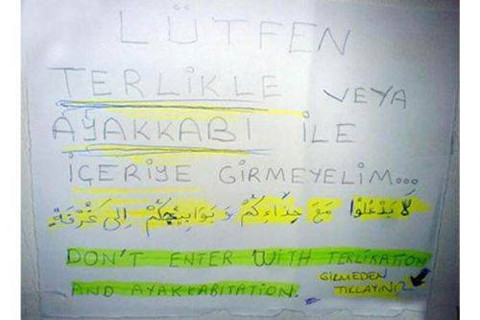 LÜTFEN
TERLiKLE VEYA
AYAKKABI iLE
iÇERiYE GiRMEYELiM...
لَا يَدْخُلُوا مَعَ حِذَاءِكُمْ وَ بَوَابِيجُكُمْ إِلَى غُرْفَةٍ
DON'T ENTER WITH TERLiKATION
AND AYAKKABITATION.
GiRMEDEN
TIKLAYINIZ